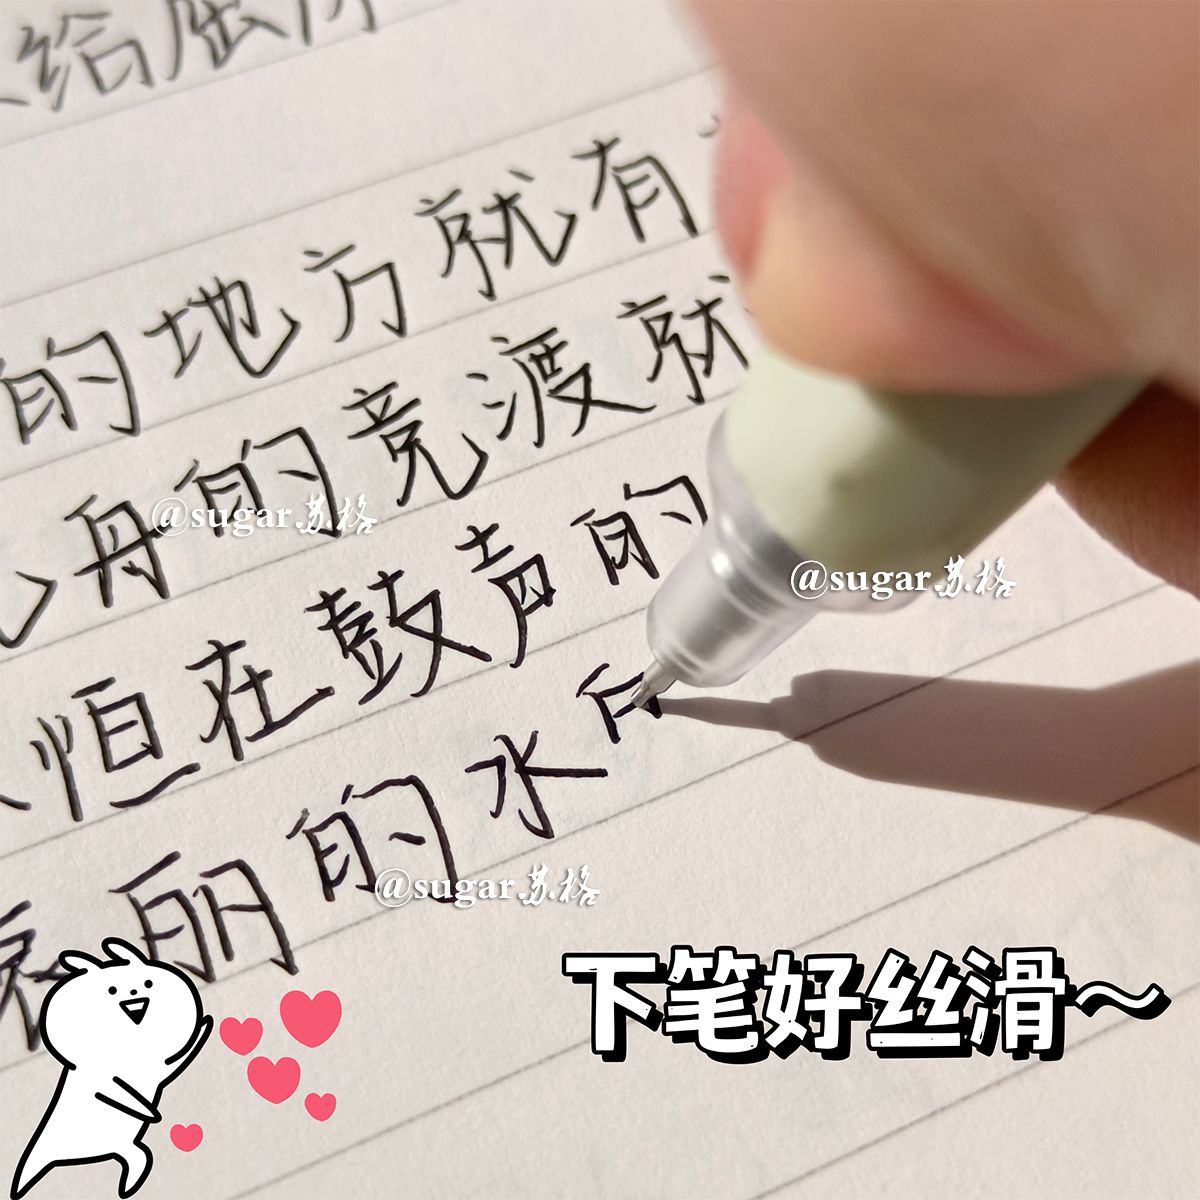 给屈原
的地方就有
舟的竞渡就
恒在鼓声的
哀丽的水
@sugar苏格
@sugar苏格
@sugar苏格
下笔好丝滑～